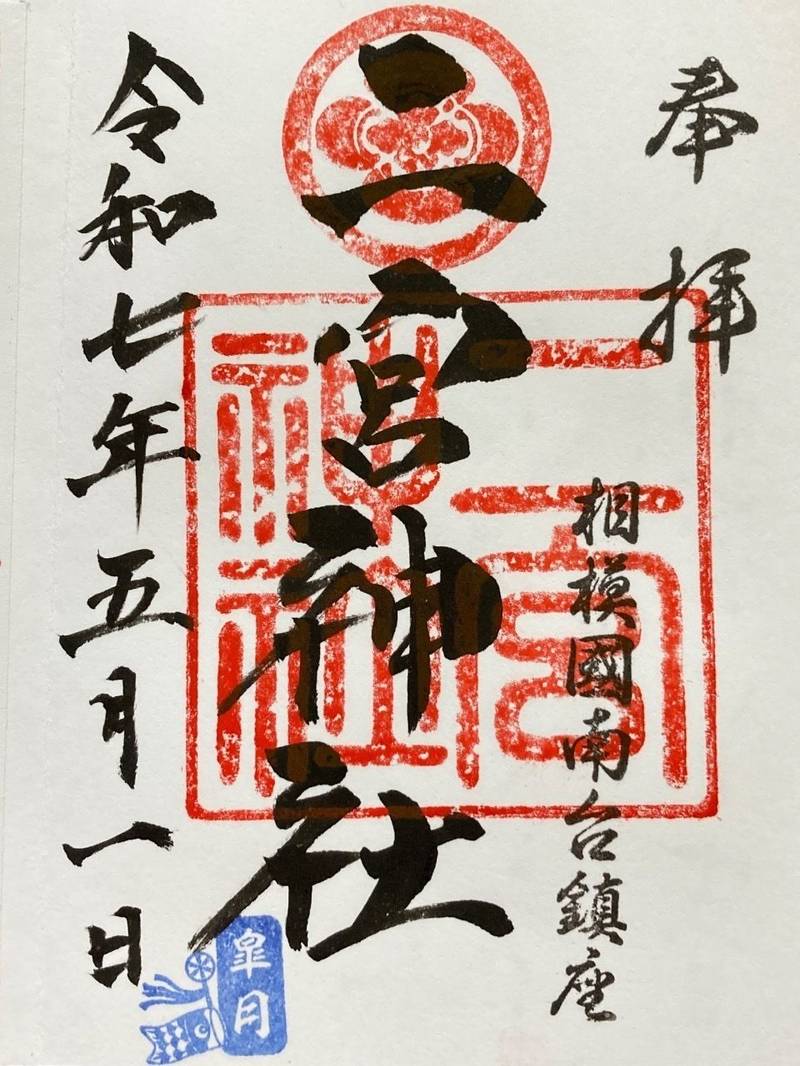 奉拝
相模國南台鎮座
二宮神社
二宮神社
令和七年五月一日
皐月